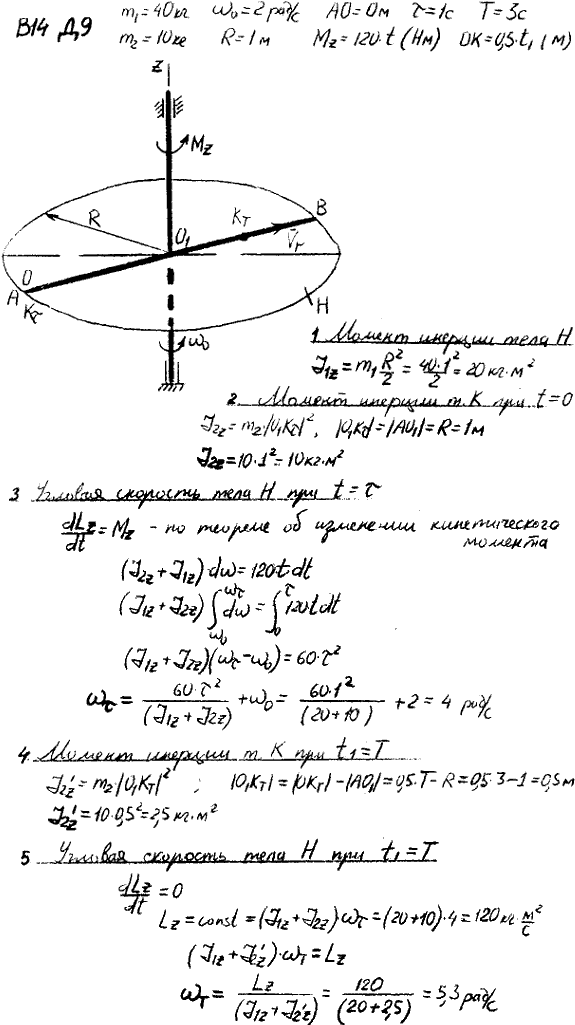 В14 Д9
m₁=40кг ω₀=2 рад/с AO=0м τ=1с T=3с
m₂=10кг R=1м M_z=120·t (Нм) OK=0,5·t₁ (м)
z
M_z
R
O₁
K_T
B
V̄_r
O
A
K_τ
H
ω₀
1 Момент инерции тела H
J₁z=m₁R²/2=40·1²/2=20 кг·м²
2. Момент инерции т. K при t=0
J₂z=m₂|O₁K_τ|², |O₁K_τ|=|AO₁|=R=1м
J₂z=10·1²=10кг·м²
3 Угловая скорость тела H при t=τ
dLz/dt=Mz - по теореме об изменении кинетического
момента
(J₂z+J₁z)dω=120t dt
(J₁z+J₂z)∫_{ω₀}^{ω_τ}dω=∫_0^τ 120t dt
(J₁z+J₂z)(ω_τ-ω₀)=60·τ²
ω_τ=60·τ²/(J₁z+J₂z)+ω₀=60·1²/(20+10)+2=4 рад/с
4. Момент инерции т. K при t₁=T
J₂z'=m₂|O₁K_T|² ; |O₁K_T|=|OK_T|-|AO₁|=0,5·T-R=0,5·3-1=0,5м
J₂z'=10·0,5²=2,5 кг·м²
5 Угловая скорость тела H при t₁=T
dLz/dt=0
Lz=const=(J₁z+J₂z)ω_τ=(20+10)·4=120кг·м²/с
(J₁z+J₂z')·ω_T=Lz
ω_T=Lz/(J₁z+J₂z')=120/(20+2,5)=5,3 рад/с